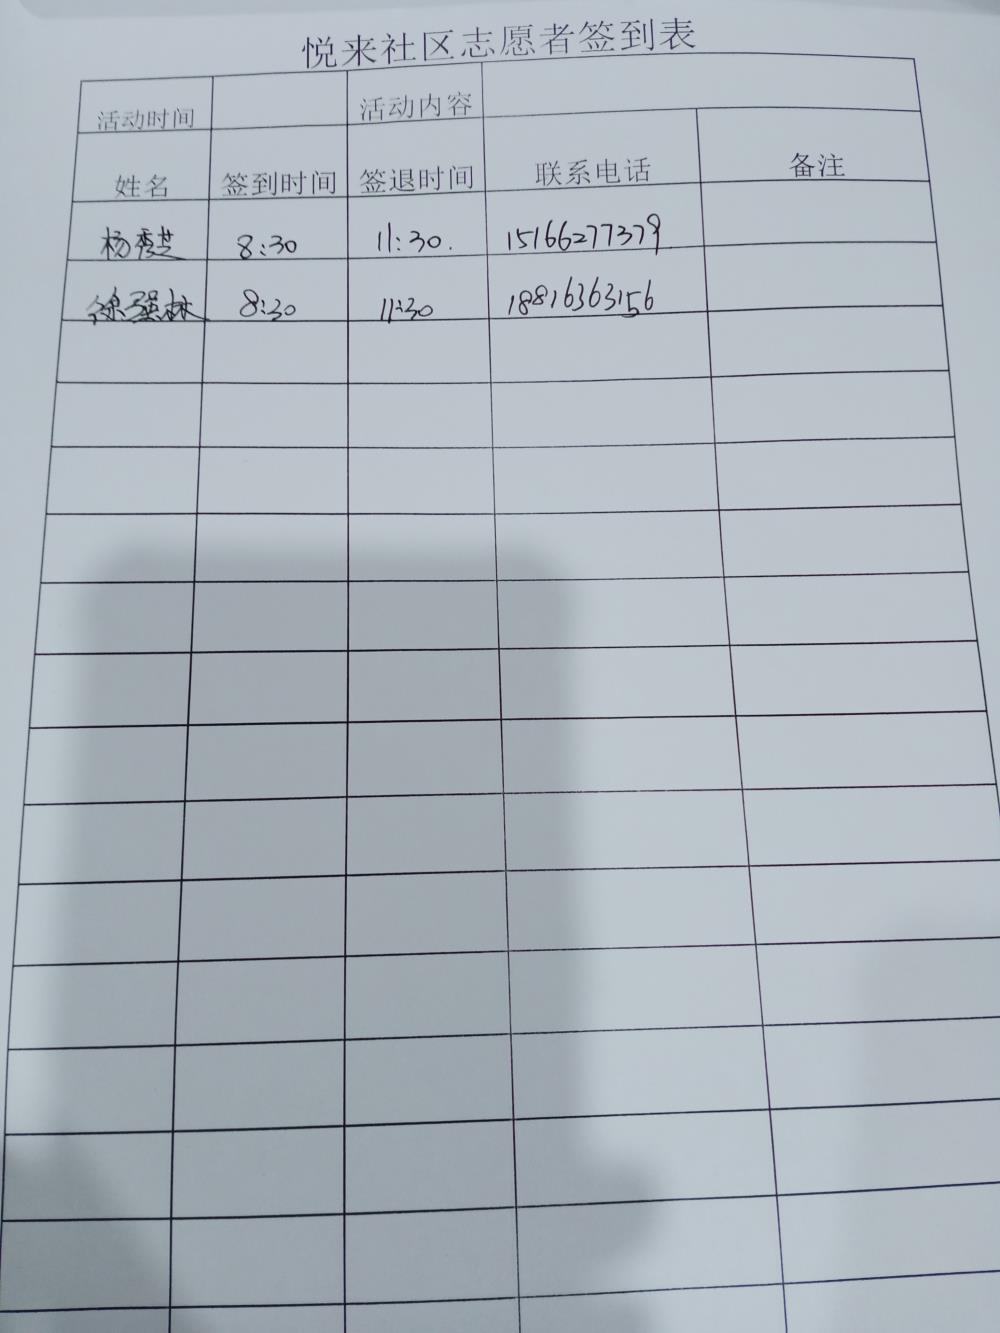 悦来社区志愿者签到表
活动时间 活动内容
姓名 签到时间 签退时间 联系电话 备注
杨秀芝 8:30 11:30. 15166277379
徐强林 8:30 11:30 18816363156